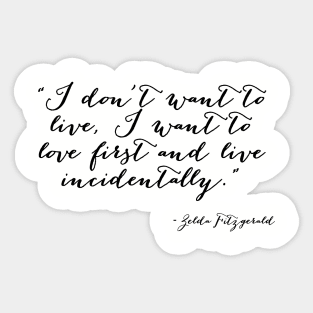 “I don't want to
live, I want to
love first and live
incidentally.”
- Zelda Fitzgerald